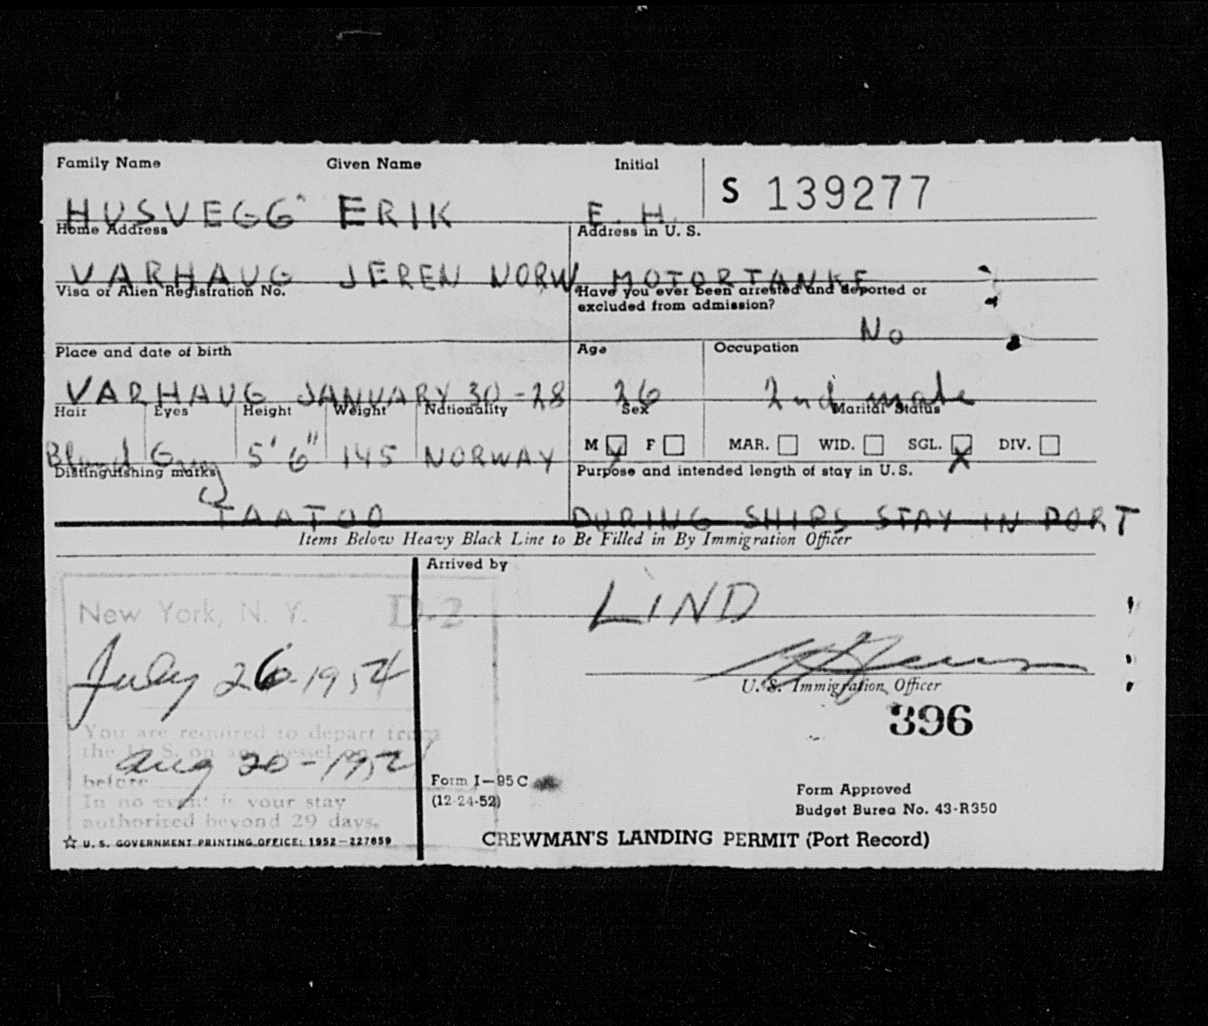 Family Name Given Name Initial
S 139277
HUSVEGG ERIK E. H.
Home Address Address in U. S.
VARHAUG JEREN NORW. MOTORTANKE
Visa or Alien Registration No. Have you ever been arrested and deported or
excluded from admission?
No
Place and date of birth Age Occupation
VARHAUG JANUARY 30-28 26 2nd mate
Hair Eyes Height Weight Nationality Sex Marital Status
Blond Gray 5' 6" 145 NORWAY M F MAR. WID. SGL. DIV.
Distinguishing marks Purpose and intended length of stay in U. S.
TAATOO DURING SHIPS STAY IN PORT
Items Below Heavy Black Line to Be Filled in By Immigration Officer
Arrived by
LIND
New York, N. Y. D-2
July 26-1954
U. S. Immigration Officer
396
You are required to depart from
the U. S. on any vessel on or
before
Aug 20-195
In no event is your stay
authorized beyond 29 days.
Form I-95 C
(12-24-52)
Form Approved
Budget Burea No. 43-R350
☆ U. S. GOVERNMENT PRINTING OFFICE: 1952-227659
CREWMAN'S LANDING PERMIT (Port Record)